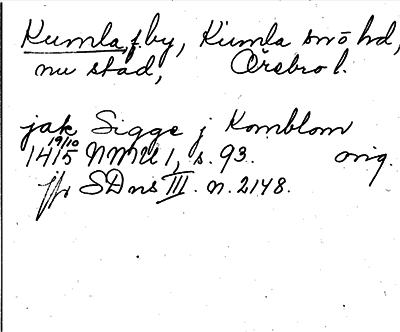 Kumla, f. by, Kumla snö hd,
nu stad, Örebro l.
jak Sigge j Komblom
19/10
1415 NMU 1, s. 93. orig.
jfr SDns III. n. 2148.